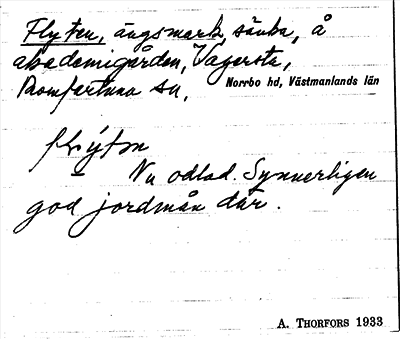 Flyten, ängsmark, sänka, å
akademigården, Vagersta,
Romfartuna sn, Norrbo hd, Västmanlands län
flýtən
Nu odlad. Synnerligen
god jordmån där.
A. THORFORS 1933